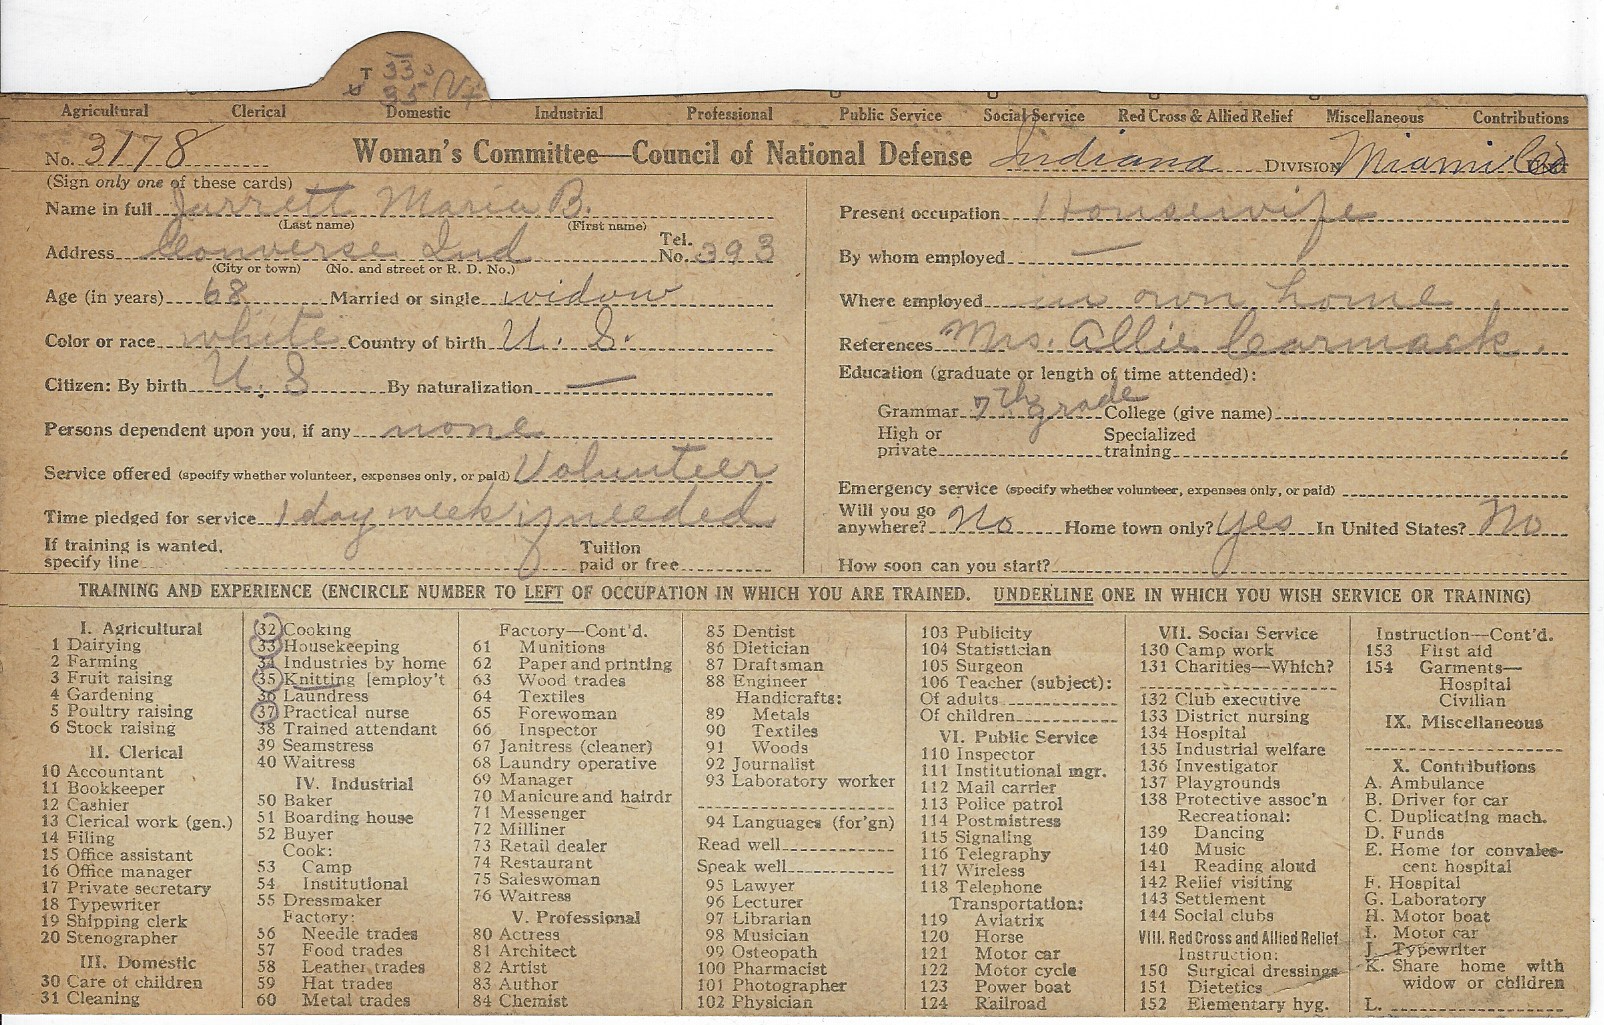 T 33
35
Agricultural Clerical Domestic Industrial Professional Public Service Social Service Red Cross & Allied Relief Miscellaneous Contributions
No. 3178 Woman's Committee—Council of National Defense Indiana DIVISION Miami Co UNIT
(Sign only one of these cards)
Name in full Jarrett Maria B.
(Last name) (First name)
Address Converse Ind Tel. No. 393
(City or town) (No. and street or R. D. No.)
Age (in years) 68 Married or single widow
Color or race white Country of birth U. S.
Citizen: By birth U. S By naturalization —
Persons dependent upon you, if any none
Service offered (specify whether volunteer, expenses only, or paid) Volunteer
Time pledged for service 1 day week if needed
If training is wanted, specify line Tuition paid or free
Present occupation Housewife
By whom employed —
Where employed in own home
References Mrs. Allie Carmack
Education (graduate or length of time attended):
Grammar 7th grade College (give name)
High or private Specialized training
Emergency service (specify whether volunteer, expenses only, or paid)
Will you go anywhere? No Home town only? yes In United States? No
How soon can you start?
TRAINING AND EXPERIENCE (ENCIRCLE NUMBER TO LEFT OF OCCUPATION IN WHICH YOU ARE TRAINED. UNDERLINE ONE IN WHICH YOU WISH SERVICE OR TRAINING)
I. Agricultural
1 Dairying
2 Farming
3 Fruit raising
4 Gardening
5 Poultry raising
6 Stock raising
II. Clerical
10 Accountant
11 Bookkeeper
12 Cashier
13 Clerical work (gen.)
14 Filing
15 Office assistant
16 Office manager
17 Private secretary
18 Typewriter
19 Shipping clerk
20 Stenographer
III. Domestic
30 Care of children
31 Cleaning
32 Cooking
33 Housekeeping
34 Industries by home
35 Knitting [employ't
36 Laundress
37 Practical nurse
38 Trained attendant
39 Seamstress
40 Waitress
IV. Industrial
50 Baker
51 Boarding house
52 Buyer
Cook:
53 Camp
54 Institutional
55 Dressmaker
Factory:
56 Needle trades
57 Food trades
58 Leather trades
59 Hat trades
60 Metal trades
Factory—Cont'd.
61 Munitions
62 Paper and printing
63 Wood trades
64 Textiles
65 Forewoman
66 Inspector
67 Janitress (cleaner)
68 Laundry operative
69 Manager
70 Manicure and hairdr
71 Messenger
72 Milliner
73 Retail dealer
74 Restaurant
75 Saleswoman
76 Waitress
V. Professional
80 Actress
81 Architect
82 Artist
83 Author
84 Chemist
85 Dentist
86 Dietician
87 Draftsman
88 Engineer
Handicrafts:
89 Metals
90 Textiles
91 Woods
92 Journalist
93 Laboratory worker
94 Languages (for'gn)
Read well
Speak well
95 Lawyer
96 Lecturer
97 Librarian
98 Musician
99 Osteopath
100 Pharmacist
101 Photographer
102 Physician
103 Publicity
104 Statistician
105 Surgeon
106 Teacher (subject):
Of adults
Of children
VI. Public Service
110 Inspector
111 Institutional mgr.
112 Mail carrier
113 Police patrol
114 Postmistress
115 Signaling
116 Telegraphy
117 Wireless
118 Telephone
Transportation:
119 Aviatrix
120 Horse
121 Motor car
122 Motor cycle
123 Power boat
124 Railroad
VII. Social Service
130 Camp work
131 Charities—Which?
132 Club executive
133 District nursing
134 Hospital
135 Industrial welfare
136 Investigator
137 Playgrounds
138 Protective assoc'n
Recreational:
139 Dancing
140 Music
141 Reading aloud
142 Relief visiting
143 Settlement
144 Social clubs
VIII. Red Cross and Allied Relief
Instruction:
150 Surgical dressings
151 Dietetics
152 Elementary hyg.
Instruction—Cont'd.
153 First aid
154 Garments—
Hospital
Civilian
IX. Miscellaneous
X. Contributions
A. Ambulance
B. Driver for car
C. Duplicating mach.
D. Funds
E. Home for convales-
cent hospital
F. Hospital
G. Laboratory
H. Motor boat
I. Motor car
J. Typewriter
K. Share home with
widow or children
L.